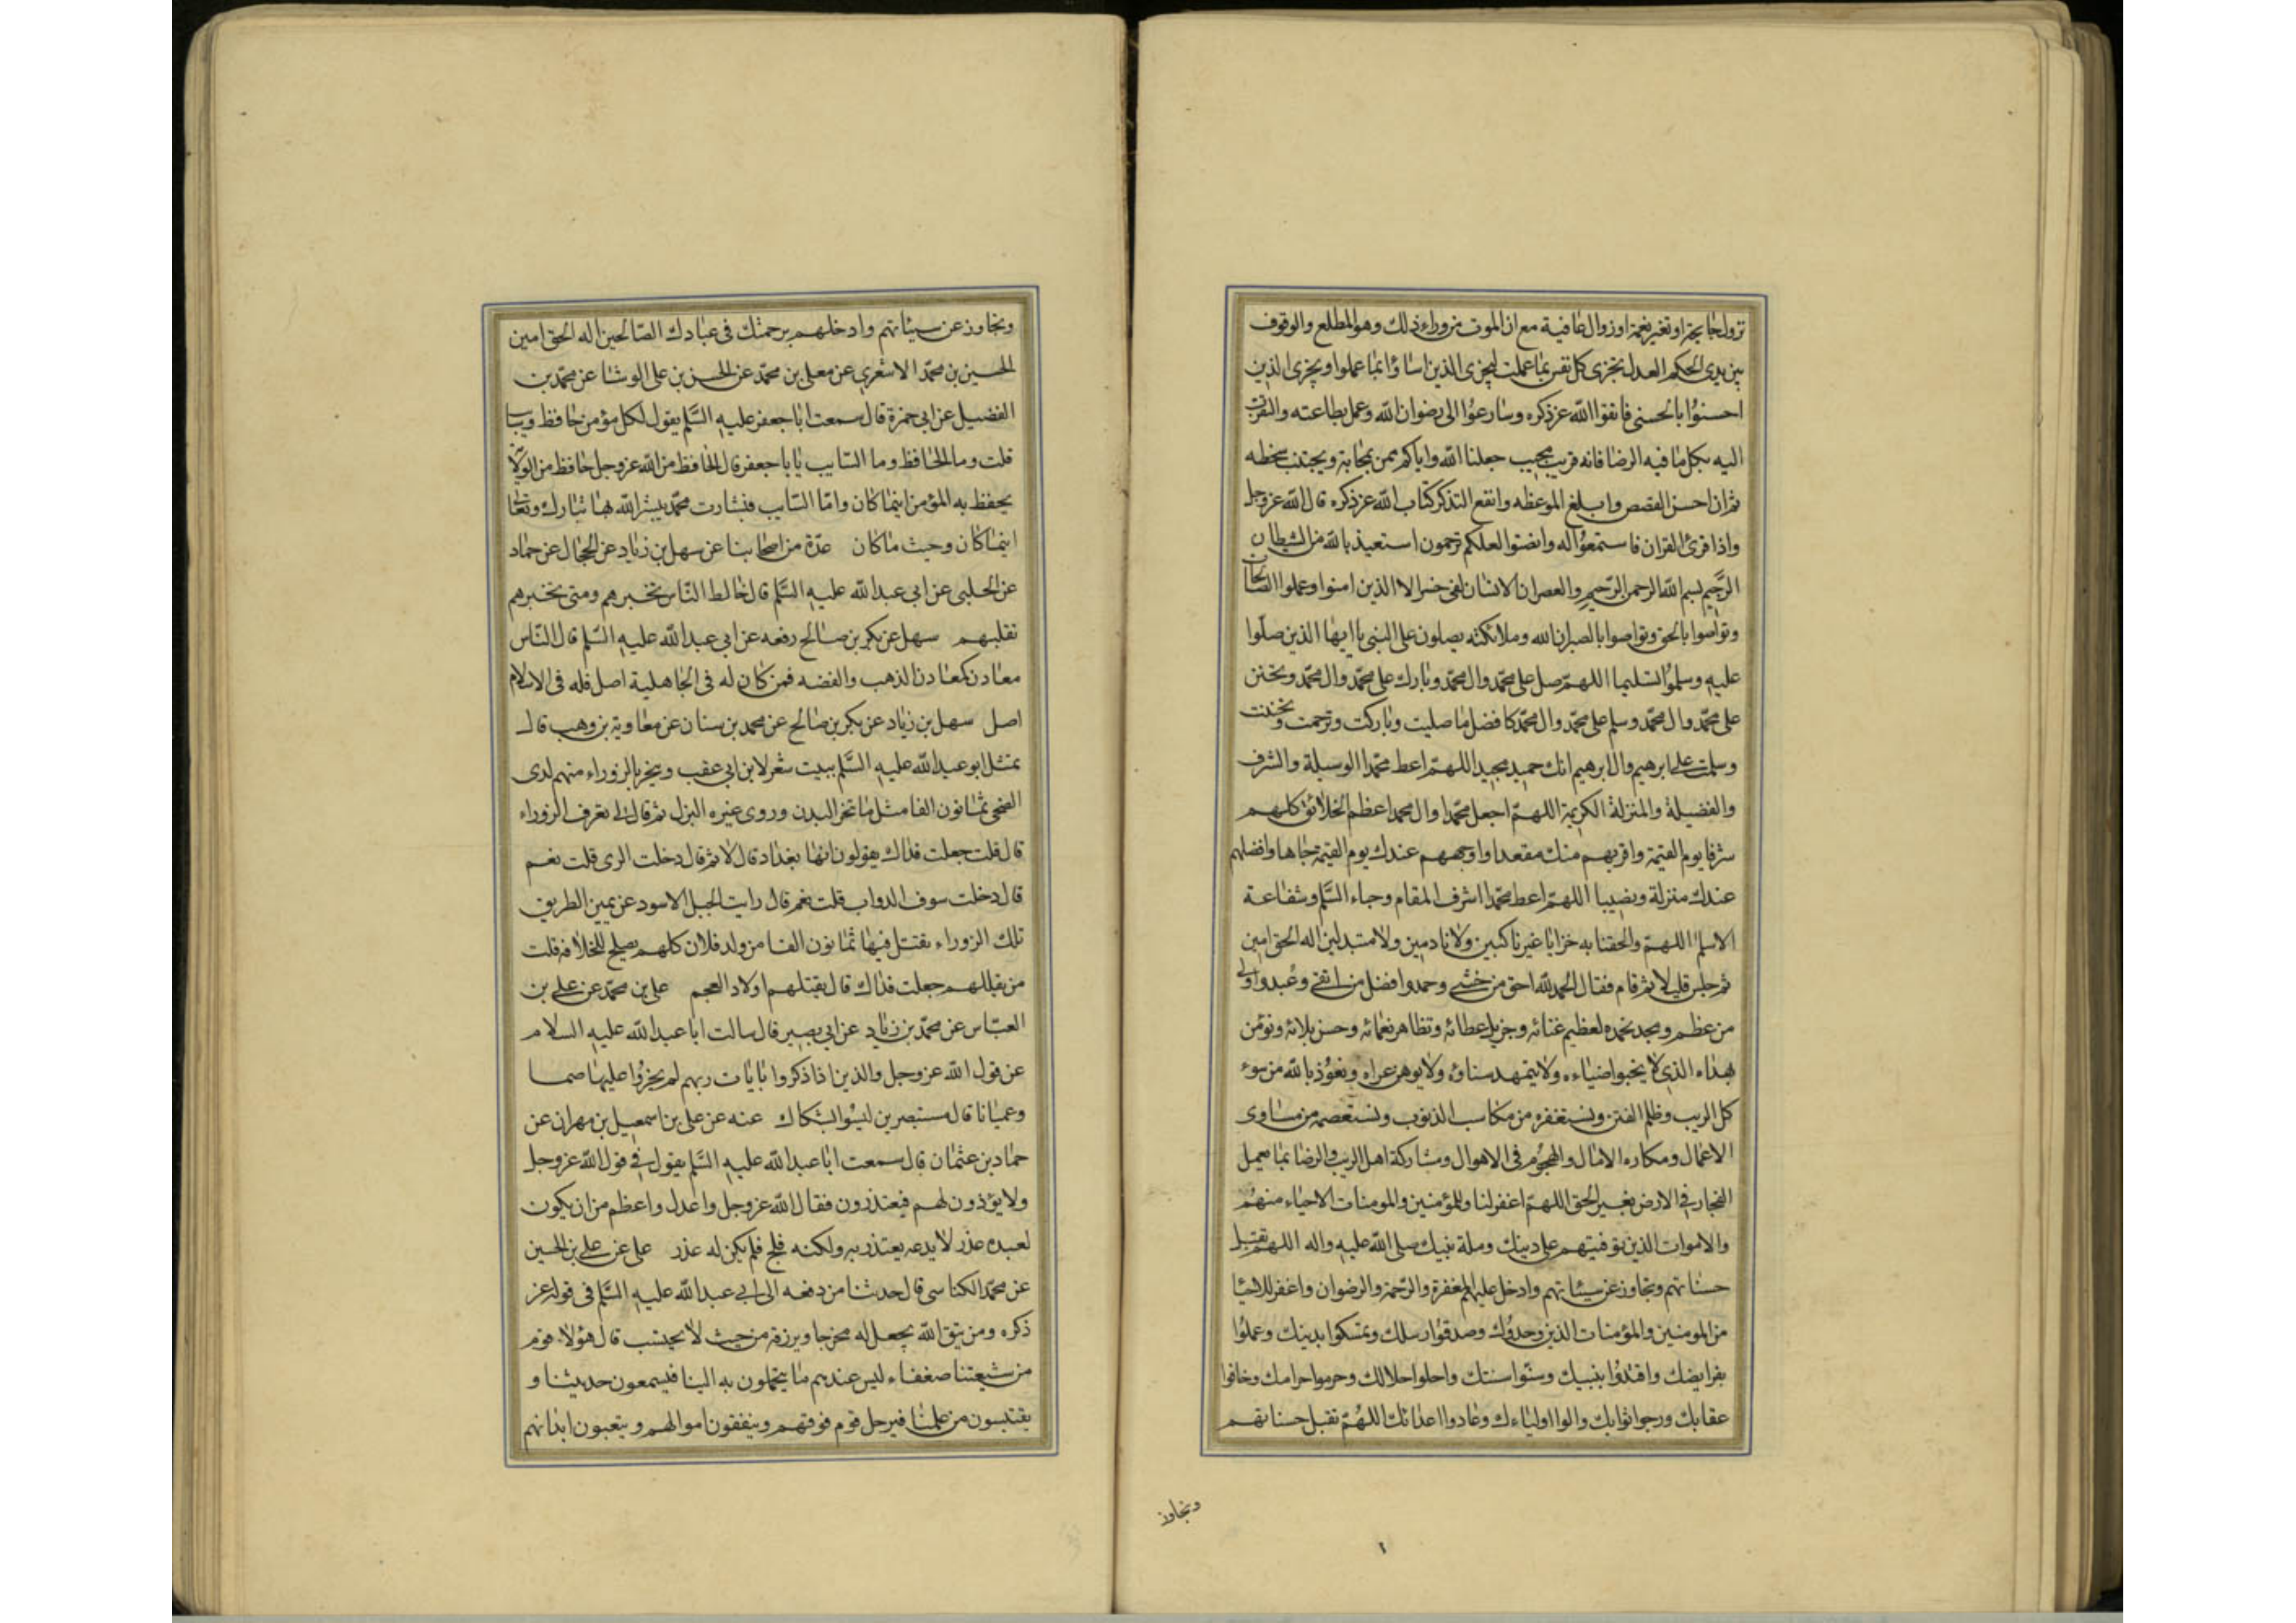 نزول جايحة او تغير نعمة او زوال عافية مع ان الموت من وراء ذلك وهو المطلع والوقوف
بين يدي الحكم العدل تجزى كل نفس بما عملت ليجزى الذين اساؤا بما عملوا ويجزى الذين
احسنوا بالحسنى فاتقوا الله عز ذكره وسارعوا الى رضوان الله وعمل بطاعته والتقرب
اليه بكل ما فيه الرضا فانه قريب مجيب جعلنا الله واياكم ممن يعمل بمحابه ويجتنب سخطه
ثم ان احسن القصص وابلغ الموعظه وانفع التذكر كتاب الله عز ذكره قال الله عز وجل
واذا قرئ القران فاستمعوا له وانصتوا لعلكم ترحمون استعيذ بالله من الشيطان
الرجيم بسم الله الرحمن الرحيم والعصر ان الانسان لفى خسر الا الذين امنوا وعملوا الصالحات
وتواصوا بالحق وتواصوا بالصبر ان الله وملائكته يصلون على النبي يا ايها الذين صلوا
عليه وسلموا تسليما اللهم صل على محمد وال محمد وبارك على محمد وال محمد وتحنن
على محمد وال محمد وسلم على محمد وال محمد كافضل ما صليت وباركت وترحمت وتحننت
وسلمت على ابرهيم وال ابرهيم انك حميد مجيد اللهم اعط محمدا الوسيلة والشرف
والفضيلة والمنزلة الكريمة اللهم اجعل محمدا وال محمد اعظم الخلائق كلهم
شرفا يوم القيمة واقربهم منك مقعدا واوجههم عندك يوم القيمة جاها وافضلهم
عندك منزلة ونصيبا اللهم اعط محمدا اشرف المقام وحباء السلم وشفاعة
الاسلم اللهم والحقنا به خزايا غير ناكبين ولا نادمين ولا متبدلين اله الحق امين
ثم جلس قليلا ثم قام فقال الحمد لله احق من خشي وحمد وافضل من اتقي وعبد واولى
من عظم ومجد نحمده لعظيم غنائه وجزيل عطائه وتظاهر نعمائه وحسن بلائه ونؤمن
بهداه الذي لا يخبوا ضياءه ولا يتمهد سناؤه ولا يوهن عراه ونعوذ بالله من سوء
كل الريب وظلم الفتن ونستغفره من مكاسب الذنوب ونستعصمه من مساوى
الاعمال ومكاره الامال والهجوم فى الاهوال ومشاركة اهل الريب والرضا بما يعمل
الفجار في الارض بغير الحق اللهم اغفر لنا وللمؤمنين والمومنات الاحياء منهم
والاموات الذين توفيتهم على دينك وملة نبيك صلى الله عليه واله اللهم تقبل
حسناتهم وتجاوز عن سيئاتهم وادخل عليهم المغفرة والرحمة والرضوان واغفر للاحيا
من المومنين والمؤمنات الذين وحدوك وصدقوا رسلك وتمسكوا بدينك وعملوا
بفرايضك واقتدوا بنبيك وسنوا سنتك واحلوا حلالك وحرموا حرامك وخافوا
عقابك ورجوا ثوابك والوا اولياءك وعادوا اعدائك اللهم تقبل حسناتهم
وتجاوز
١
وتجاوز عن سيئاتهم وادخلهم برحمتك فى عبادك الصالحين اله الحق امين
الحسين بن محمد الاشعري عن معلى بن محمد عن الحسن بن على الوشا عن محمد بن
الفضيل عن ابي حمزة قال سمعت ابا جعفر عليه السلم يقول لكل مؤمن حافظ وسايب
قلت وما الحافظ وما السايب يا با جعفر قال الحافظ من الله عز وجل حافظ من الولاية
يحفظ به المؤمن اينما كان واما السايب فبشارت محمد يبشر الله بها تبارك وتعالى
اينما كان وحيث ما كان عدة من اصحابنا عن سهل بن زياد عن الحجال عن حماد
عن الحلبى عن ابى عبد الله عليه السلم قال خالط الناس تخبرهم ومتى تخبرهم
تقلبهم سهل عن بكر بن صالح رفعه عن ابى عبد الله عليه السلم قال الناس
معادن كمعادن الذهب والفضه فمن كان له فى الجاهلية اصل فله فى الاسلام
اصل سهل بن زياد عن بكر بن صالح عن محمد بن سنان عن معاوية بن وهب قال
تمثل ابو عبد الله عليه السلم ببيت شعر لابن ابي عقب وينحر بالزوراء منهم لدى
الضحى ثمانون الفا مثل ما تنحر البدن وروى غيره البزل ثم قال لى تعرف الزوراء
قال قلت جعلت فداك يقولون انها بغداد قال لا ثم قال دخلت الرى قلت نعم
قال دخلت سوق الدواب قلت نعم قال رايت الجبل الاسود عن يمين الطريق
تلك الزوراء يقتل فيها ثمانون الفا من ولد فلان كلهم يصلح للخلافة قلت
من يقتلهم جعلت فداك قال يقتلهم اولاد العجم على بن محمد عن على بن
العباس عن محمد بن زياد عن ابي بصير قال سالت ابا عبد الله عليه السلام
عن قول الله عز وجل والذين اذا ذكروا بايات ربهم لم يخروا عليها صما
وعميانا قال مستبصرين ليسوا بشكاك عنه عن على بن اسمعيل بن مهران عن
حماد بن عثمان قال سمعت ابا عبد الله عليه السلم يقول في قول الله عز وجل
ولا يؤذن لهم فيعتذرون فقال الله عز وجل واعدل واعظم من ان يكون
لعبده عذر لا يدعه يعتذر به ولكنه فلج فلم يكن له عذر على عن على بن الحسين
عن محمد الكناسى قال حدثنا من رفعه الى ابي عبد الله عليه السلم فى قوله عز
ذكره ومن يتق الله يجعل له مخرجا ويرزقه من حيث لا يحتسب قال هؤلاء قوم
من شيعتنا ضعفاء ليس عندهم ما يتحملون به الينا فيسمعون حديثنا و
يقتبسون من علمنا فيرحل قوم فوقهم وينفقون اموالهم ويتعبون ابدانهم